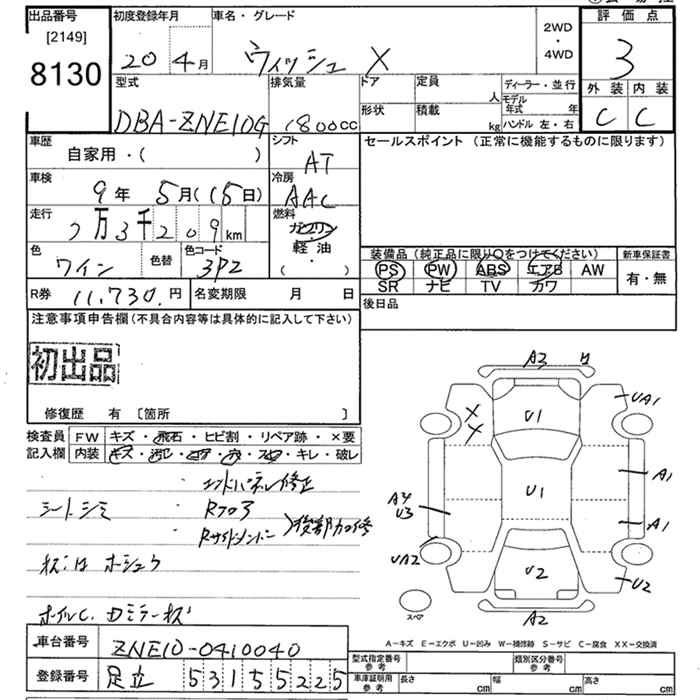 出品番号
[2149]
8130
初度登録年月
20 4月
車名・グレード
ウィッシュ X
2WD
・
4WD
評価点
3
外装 内装
C C
型式
DBA-ZNE10G
排気量
1800cc
ドア
形状
定員
人
積載
kg
ディーラー・並行
モデル年式 年
ハンドル 左・右
車歴
自家用・( )
シフト
AT
セールスポイント (正常に機能するものに限ります)
車検
9年 5月(15日)
冷房
AAC
走行
7万3千209km
燃料
ガソリン
・
軽油
・
( )
色
ワイン
色替
色コード
3P2
装備品(純正品に限り○をつけてください)
PS PW ABS エアB AW
SR ナビ TV カワ
新車保証書
有・無
R券 11,730.円
名変期限 月 日
後日品
注意事項申告欄(不具合内容等は具体的に記入して下さい)
初出品
修復歴 有 [箇所 ]
検査員記入欄
FW キズ・飛石・ヒビ割・リペア跡・×要
内装 キズ・汚れ・コゲ・穴・スレ・キレ・破レ
・エンドパネル修正
シートシミ ・Rフロア
Rサイドメンバー
後部加修
ホイルC. Dミラーキズ
A3
U1
UA1
X
X
U1
A1
A1
A4
U3
UA2
U2
U2
A2
スペア
A-キズ E-エクボ U-凹み W-補修跡 S-サビ C-腐食 XX-交換済
車台番号 ZNE10-0410040
登録番号 足立 531 5 5225
型式指定番号 参考
類別区分番号 参考
車庫証明用 参考 長さ cm 幅 cm 高さ cm